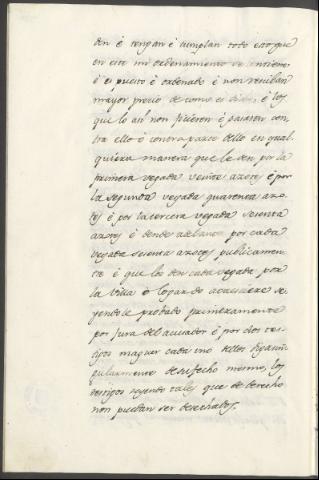 den é tengan é cumplan todo esto que
en este mi ordenamiento se contiene
é es puesto é ordenado é non resciban
mayor precio de como es dicho, é los
que lo ansi non ficieren é pasaren con
tra ello é contra parte dello en qual
quiera manera que le den por la
primera vegada veinte azotes é por
la segunda vegada quarenta azo
tes é por la tercera vegada sesenta
azotes é dende adelante por cada
vegada sesenta azotes publicamen
te é que los den cada vegada por
la Villa ó logar do acaesciere se
yendole probado primeramente
por jura del acusador é por dos tes
tigos maguer cada uno dellos
de su fecho mesmo, los
testigos seyendo tales que de derecho
non puedan ser desechados.